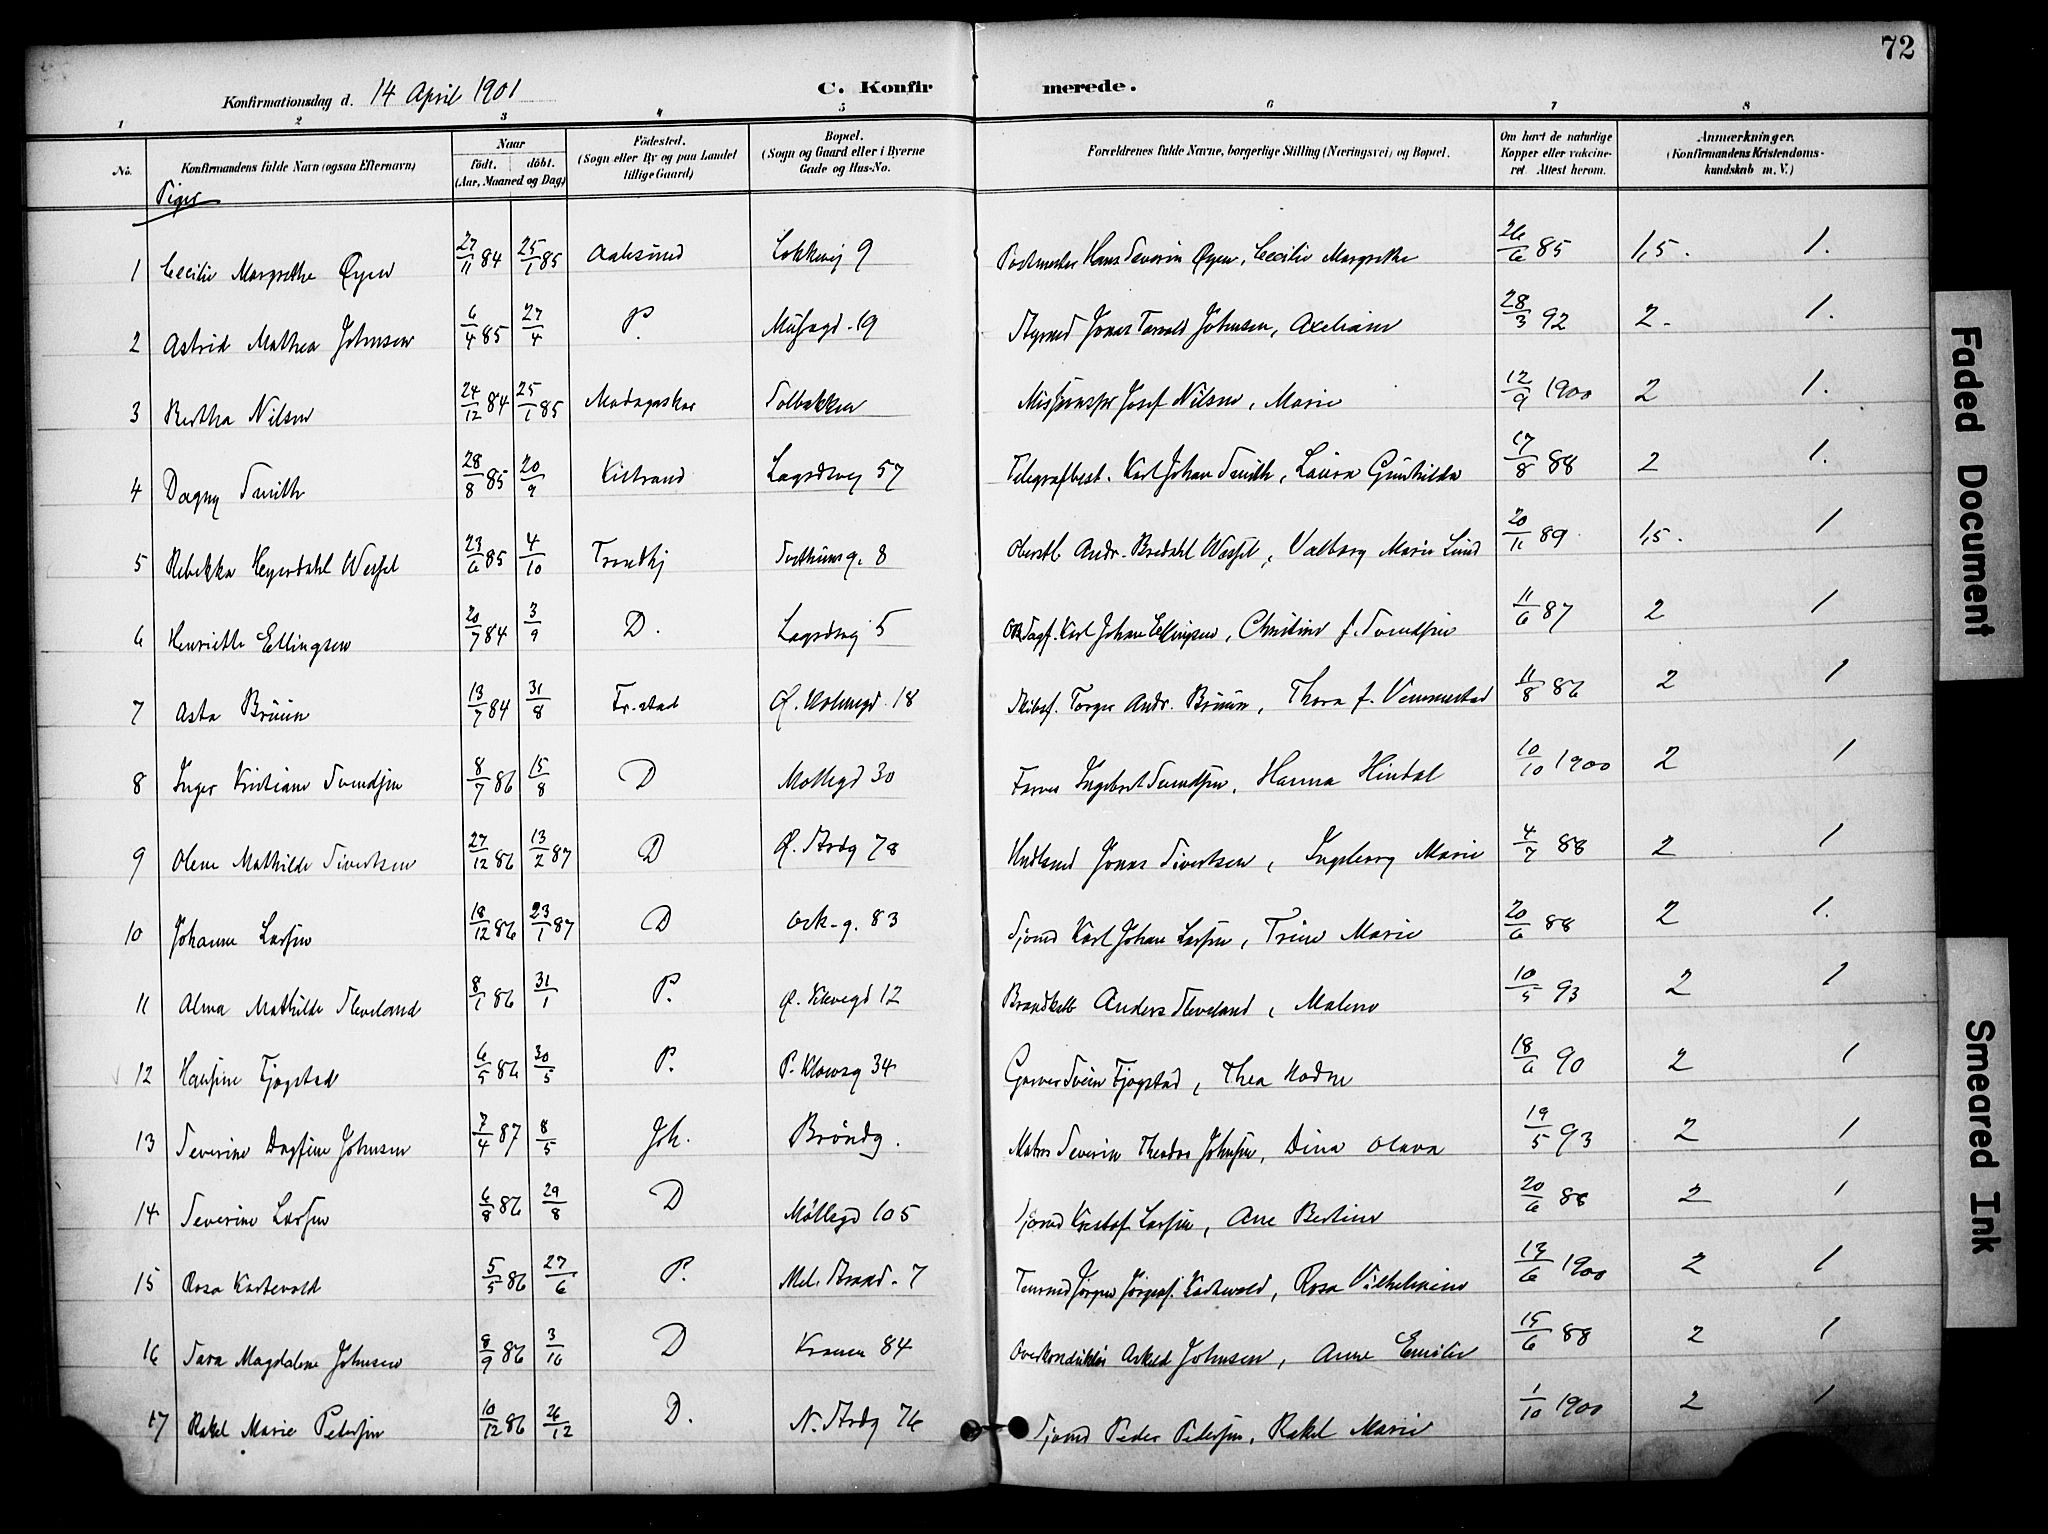 72
Konfirmationsdag d. 14 April 1901
C. Konfirmerede.
1 2 3 4 5 6 7 8
No.
Konfirmandens fulde Navn (ogsaa Efternavn)
Naar
födt. döbt.
(Aar, Maaned og Dag)
Födested.
(Sogn eller By og paa Landet
tillige Gaard)
Bopæl.
(Sogn og Gaard eller i Byerne
Gade og Hus-No.
Forældrenes fulde Navne, borgerlige Stilling (Næringsvei) og Bopæl.
Om havt de naturlige
Kopper eller vakcine-
ret. Attest herom.
Anmærkninger.
(Konfirmandens Kristendoms-
kundskab m. V.)
Piger
1 Cecilie Margrethe Øyen 27/11 84 25/1 85 Aalesund Løkkevej 9 Postmester Hans Severin Øyen, Cecilie Margrethe 26/6 85 1,5. 1.
2 Astrid Mathea Johnsen 6/4 85 27/4 P. Musegd. 19 Styrmd Jonas Johnsen, Axeliane 28/3 92 2. 1.
3 Bertha Nilsen 24/12 84 25/1 85 Madagaskar Solbakken Josef Nilsen, Marie 12/9 1900 2 1.
4 Dagny Smith 28/8 85 20/9 Kistrand Lagsdvej 57 Telegrafbest. Karl Johan Smith, Laura Gunhilda 17/8 88 2 1.
5 Rebekka Heyerdahl Wessel 23/6 85 4/10 Trondhj 8 Oberstl. Andr. Bredahl Wessel, Valborg Marie Lund 20/11 89 1,5. 1
6 Henriette Ellingsen 20/7 84 3/9 D. Lagsdvej 5 Karl Johan Ellingsen, Christine f. Svendsen 11/6 87 2 1
7 Asta Bruun 13/7 84 31/8 Fr.stad Ø. Holmegd. 18 Skibsf. Torger Andr. Bruun, Thora f. Vemmestad 11/8 86 2 1
8 Inger Kristiane Svendsen 8/7 86 15/8 D Møllegd 30 Farver Ingebret Svendsen, Hanna Hindal 10/10 1900 2 1
9 Olene Mathilde Sivertsen 27/12 86 13/2 87 D Ø. Strdg 78 Hndlsmd Jonas Sivertsen, Ingeborg Marie 4/7 88 2 1
10 Johanne Larsen 18/12 86 23/1 87 D 83 Sjømd Karl Johan Larsen, Trine Marie 20/6 88 2 1.
11 Alma Mathilde Fleveland 8/1 86 31/1 P. 12 Anders Fleveland, Malene 10/5 93 2 1
12 Hansine Fjogstad 6/5 86 30/5 P. P. Klowsg 34 Garver Svein Fjogstad, Thea Hodne 18/6 90 2 1
13 Severine Dagfine Johnsen 7/4 87 8/5 Joh. Brøndg. Matros Severin Theodor Johnsen, Dina Olava 19/5 93 2 1
14 Severine Larsen 6/8 86 29/8 D Møllegd 105 Sjømd Kristof. Larsen, Ane Bertine 20/6 88 2 1
15 Rosa Kastevold 5/5 86 27/6 P. Mel. Strand. 7 Jørgen Kastevold, Rosa Vilhelmine 13/6 1900 2 1
16 Sara Magdalene Johnsen 8/9 86 3/10 D Kranen 84 Overkonduktør Johnsen, Anne Emilie 15/6 88 2 1
17 Rakel Marie Petersen 10/12 86 26/12 D. N. Strdg 76 Sjømd Peder Petersen, Rakel Marie 1/10 1900 2 1
Faded Document
Smeared Ink